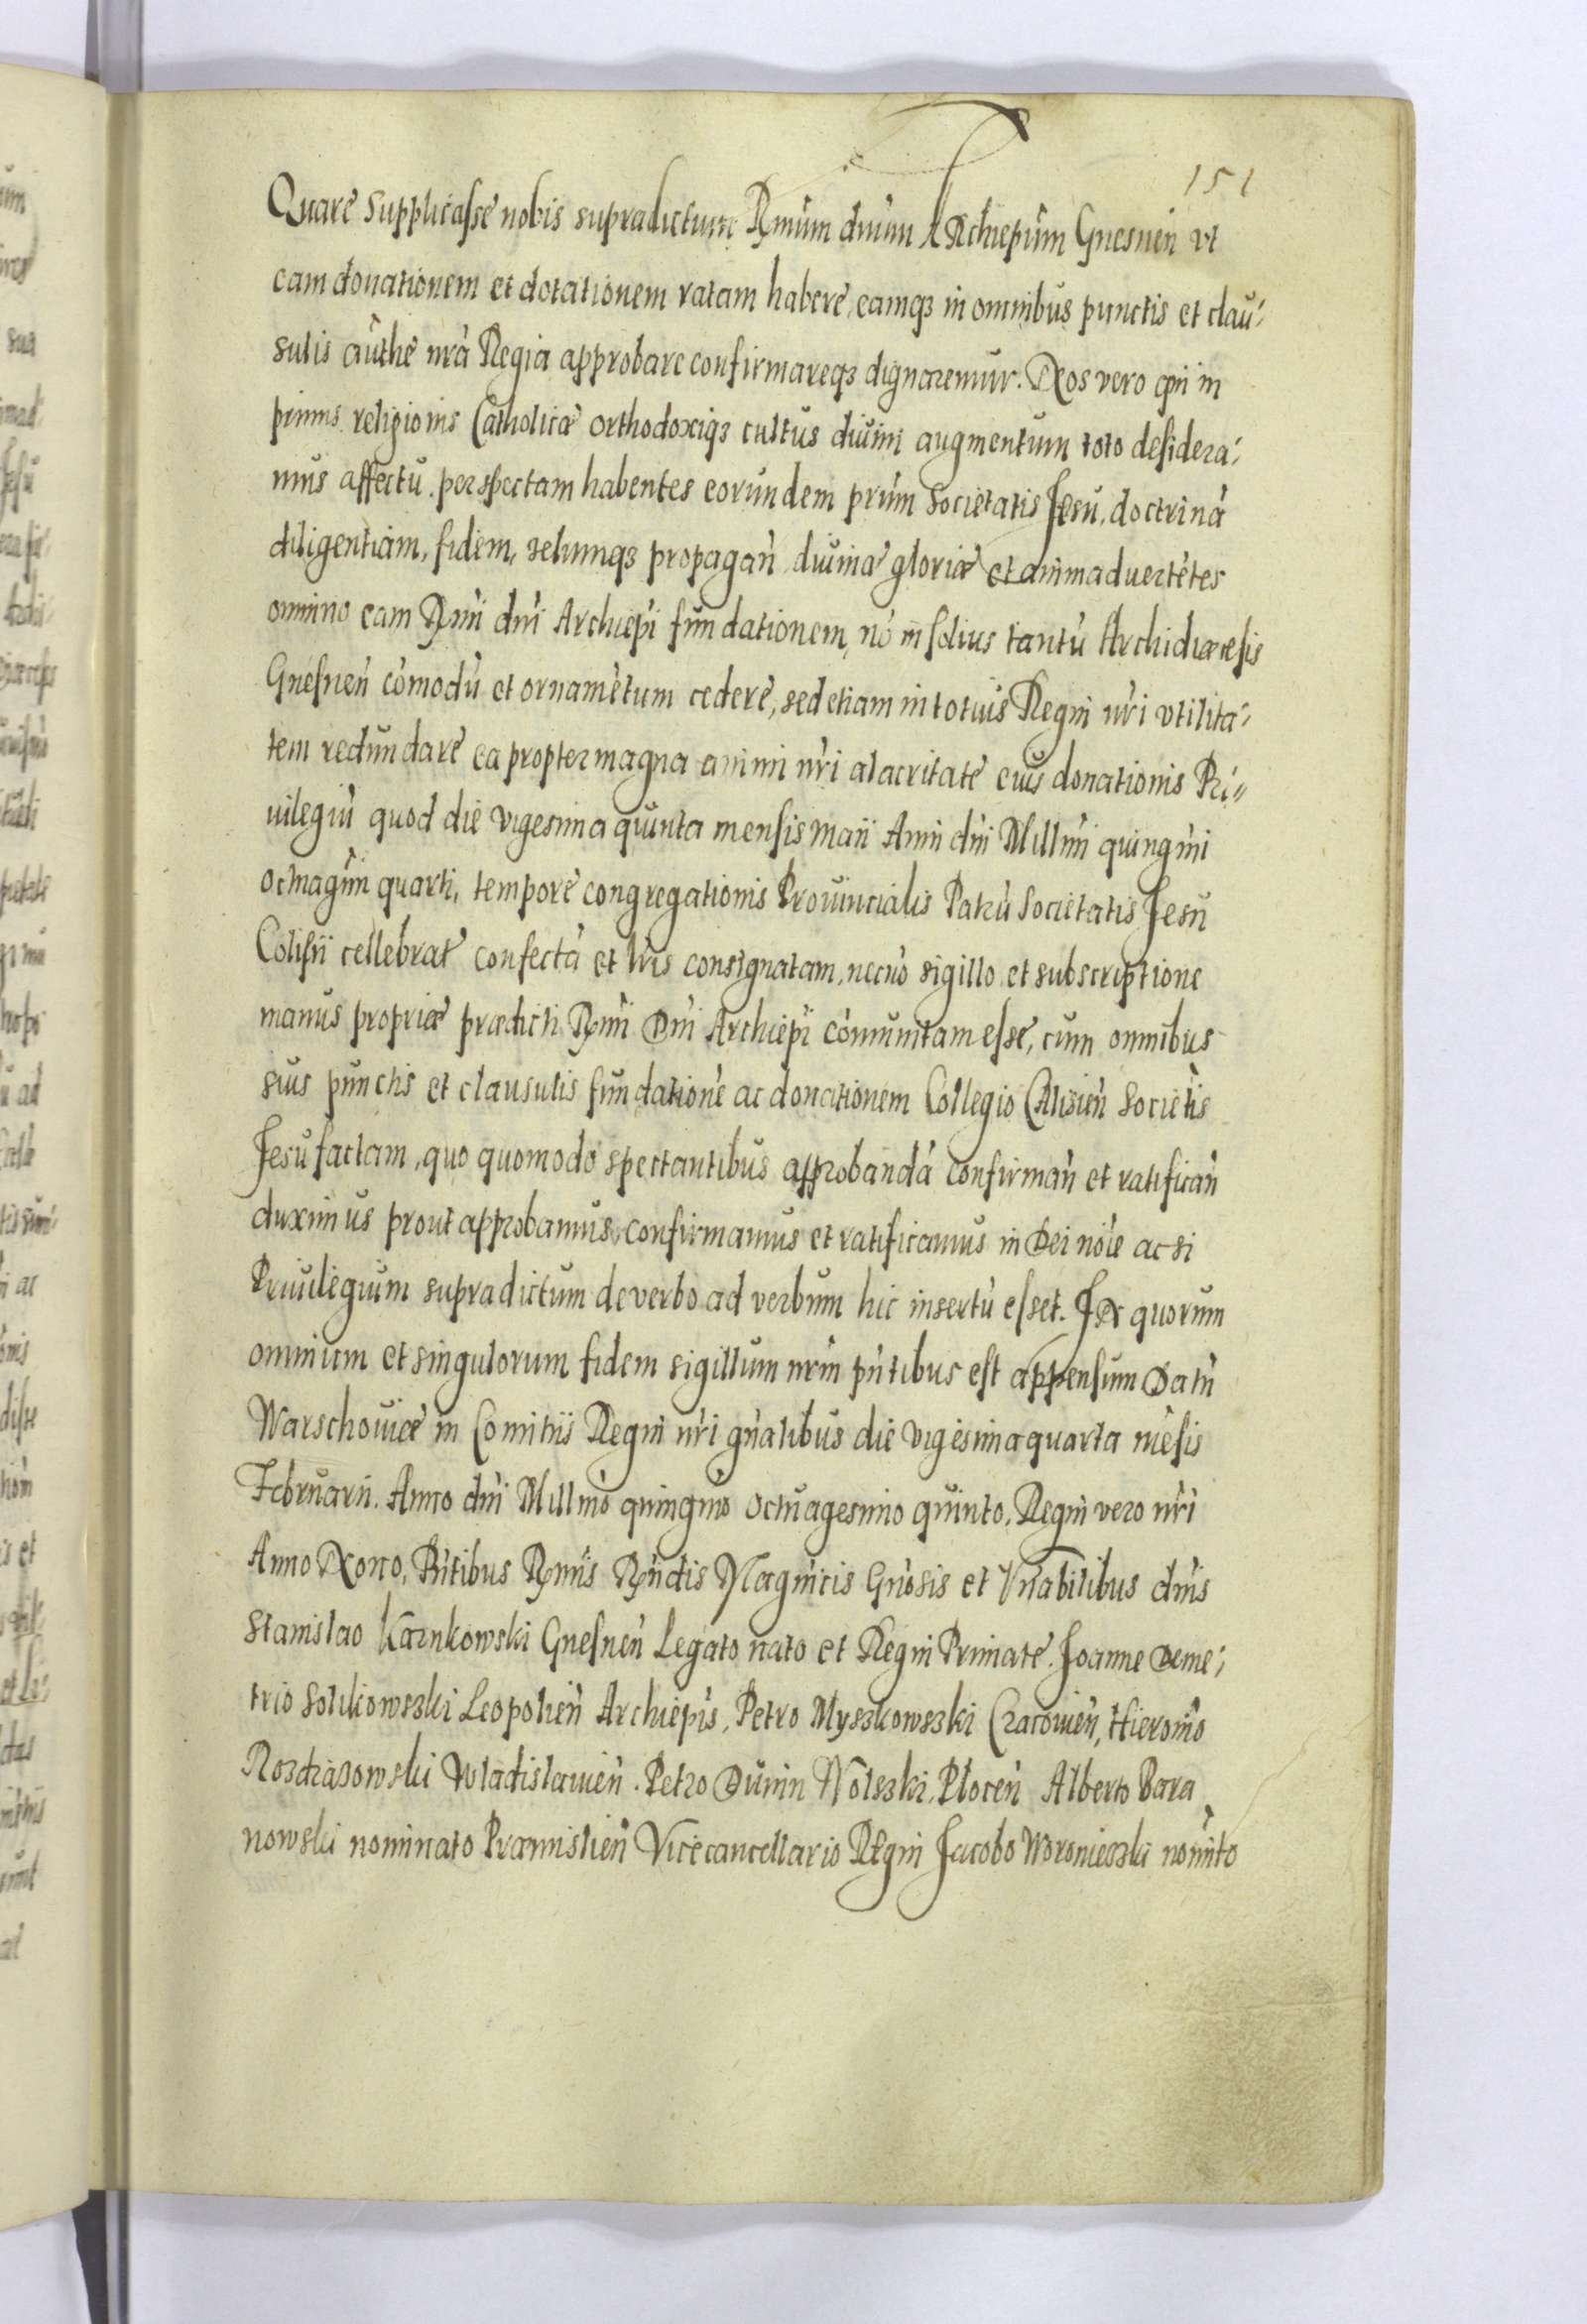 151
Quare Supplicasse nobis supradictum Rmum dnum Archiepum Gnesnen vt
eam donationem et dotationem ratam habere, eamqз in omnibus punctis et clau-
sulis authe nra Regia approbare confirmareqз dignaremur. Nos vero qui in
primis religionis Catholicæ orthodoxiqз cultus diuini augmentum toto desidera-
mus affectu. perspectam habentes eorundem prum Societatis Jesu, doctrinà
diligentiam, fidem, zelumqз propagan diuinæ gloriæ et animaduertetes
omnino eam Rmi dni Archiepi fundationem, nò in solius tantù Archidiœcesis
Gnesnen còmodù et ornamètum cedere, sed etiam in totius Regni nri vtilita-
tem redundare ea propter magna animi nri alacritate eius donationis Pri-
uilegiù quod die vigesima quinta mensis maii Anni dni Millmi quingmi
octuagmi quarti, tempore congregationis Prouincialis Patrù Societatis Jesu
Colisii cellebrat confectà et lris consignatam, necno sigillo et subscriptione
manus propriæ prædicti Rmi Dni Archiepi còmunitam esse, cum omnibus
suis punctis et clausulis fundatione ac donationem Collegio Calisien Societis
Jesu factam, quo quomodo spectantibus approbandà confirman et ratifican
duximus prout approbamus, confirmamus et ratificamus in Dei noie ac si
Priuilegium supradictum de verbo ad verbum hic insertù esset. In quorum
omnium et singulorum fidem sigillum nrm pntibus est appensum Datù
Warschouiæ in Comitiis Regni nri gnalibus die vigesima quarta mèsis
Februarii. Anno dni Millmo quingmo octuagesimo quinto, Regni vero nri
Anno Nono, Pntibus Rmis Rndis Magnicis Gnosis et Vnabilibus dnis
Stanislao Karnkowski Gnesnen Legato nato et Regni Primate. Joanne Deme-
trio Solikowszki Leopolien Archiepis, Petro Myszkowszki Cracouien, Hieronimo
Rozdrazowski Wladislauien. Petro Dunin Wolszki, Plocen Alberto Bara
nowski nominato Præmislien Vicecancellario Regni Jacobo Woronieczki nominto